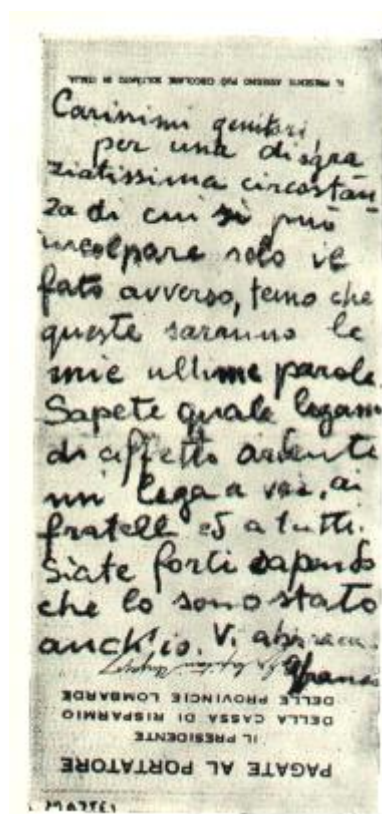 IL PRESENTE ASSEGNO PUÒ CIRCOLARE SOLTANTO IN ITALIA
Carissimi genitori,
per una disgra
ziatissima circostan
za di cui si può
incolpare solo il
fato avverso, temo che
queste saranno le
mie ultime parole.
Sapete quale legame
di affetto ardente
mi lega a voi, ai
fratelli ed a tutti.
Siate forti sapendo
che lo sono stato
anch'io. Vi abbraccio
DELLE PROVINCIE LOMBARDE
DELLA CASSA DI RISPARMIO
IL PRESIDENTE
PAGATE AL PORTATORE
MATTEI